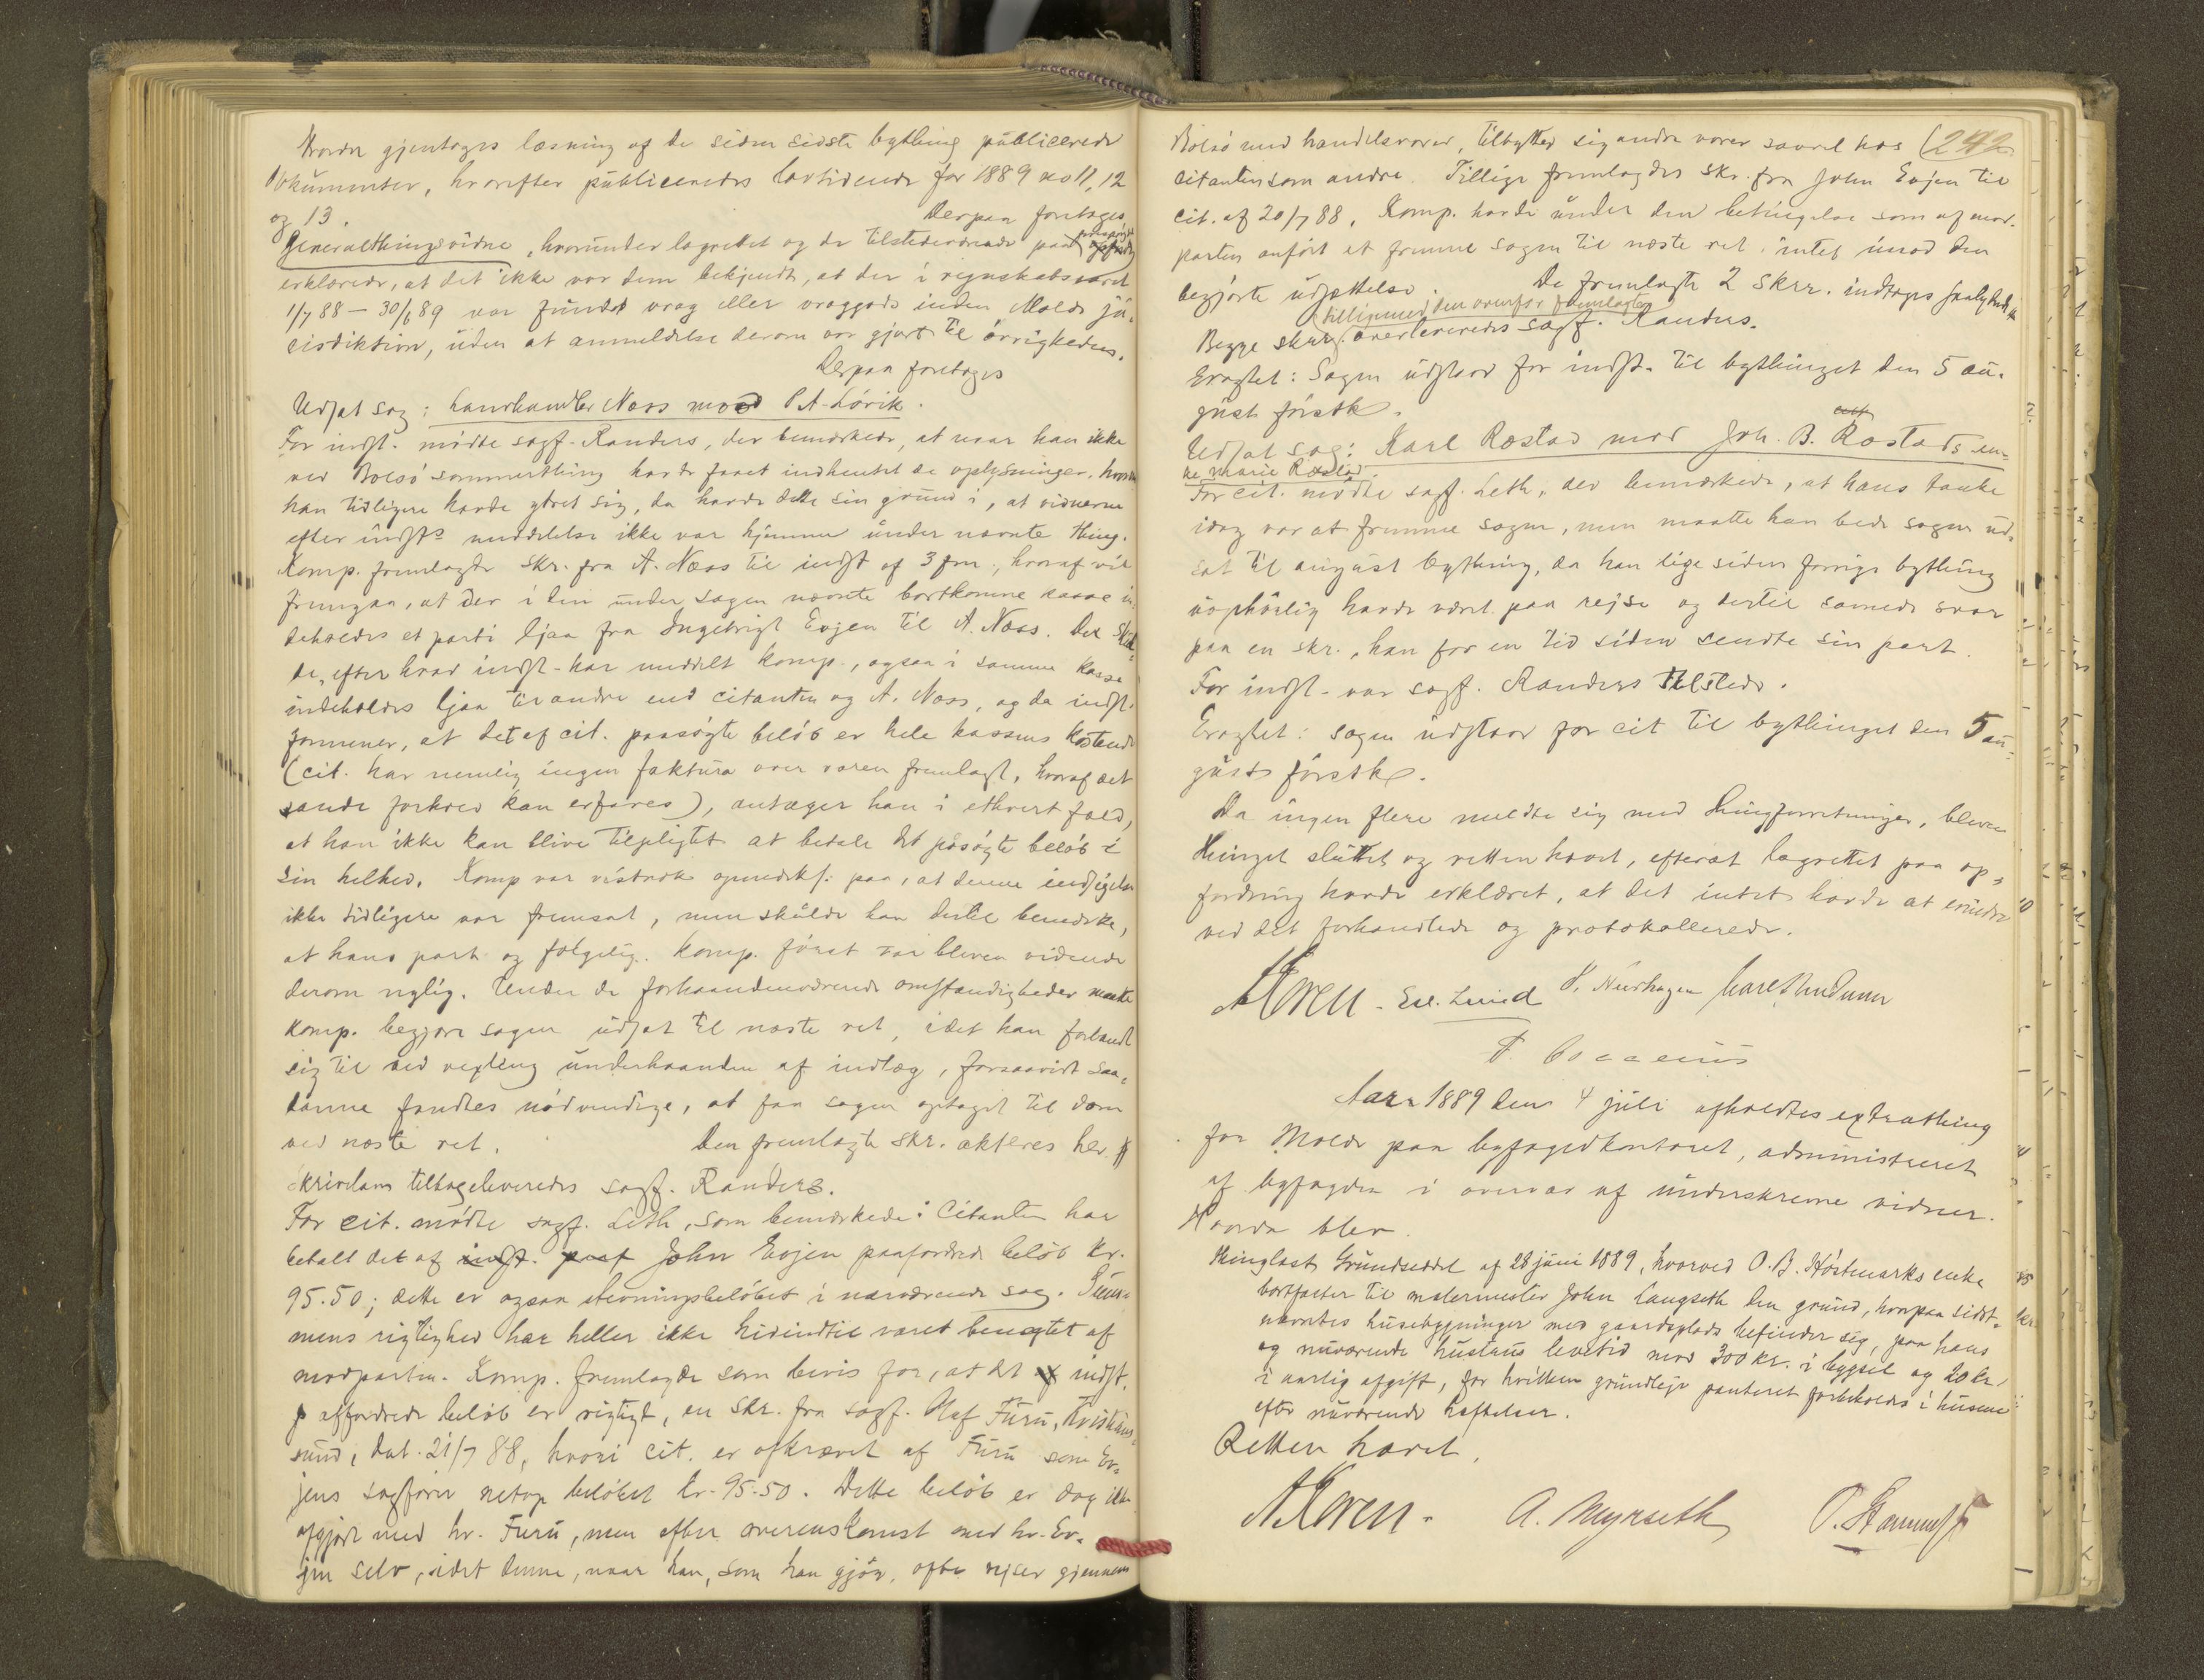 Hvorda gjentoges læsning af de siden sidste bything publicerede
dokumenter, hvorefter publiceredes lovtidende for 1889 no 11, 12
og 13.
Derpaa foretoges
Generalthingsvidne, hvorunder lagrettet og de tilstedeværende paa
erklærede, at det ikke var dem bekjendt, at der i regnskabsaaret
1/7 88 – 30/6 89 var fundet vrag eller vraggods inden Molde ju-
risdiktion, uden at anmeldelse derom var gjort til øvrigheden.
Derpaa foretoges
Udsat sag: Landhandler Næss mod P. A. Lövik.
For indst. mødte sagf. Randers, der bemærkede, at naar han ikke
ved Bolsö sommerthing havde faaet indhentet de oplysninger, hvorom
han tidligere havde ytret sig, da havde dette sin grund i, at vidnerne
efter indst.s meddelelse ikke var hjemme under nævnte thing.
Komp. fremlagde skr. fra A. Næss til indst. af 3 fm., hvoraf vil
fremgaa, at der i den under sagen nævnte bortkomne kasse in-
deholdes et parti ljaa fra Ingebrigt Evjen til A. Næss. Der skul-
de, efter hvad indst. har meddelt komp., ogsaa i samme kasse
indeholdes ljaa til andre end citanten og A. Næss, og da indst.
formener, at det af cit. paasögte belöb er hele kassens kostende
(cit. har nemlig ingen faktura over varen fremlagt, hvoraf det
sande forhold kan erfares), antager han i ethvert fald,
at han ikke kan blive tilpligtet at betale det påsögte belöb i
sin helhed. Komp. var vistnok opmerks. paa, at denne indsigelse
ikke tidligere var fremsat, men skulde han dertil bemerke,
at hans part og fölgelig komp. först var bleven vidende
derom nylig. Under de forhaandenværende omstændigheder maatte
komp. begjære sagen udsat til næste ret, idet han forbandt
sig til ved vexling underhaanden af indlæg, forsaavidt saa-
danne fandtes nödvendige, at faa sagen optaget til dom
ved næste ret.
Den fremlagte skr. akteres her
skrivelsen tilbageleveredes sagf. Randers.
For cit. mödte sagf. Leth, som bemærkede: Citanten har
betalt det af indst. part John Evjen paafordrede belöb kr.
95.50; dette er ogsaa stevningsbelöbet i nærværende sag. Sum-
mens rigtighed har heller ikke hidindtil været benegtet af
modparten. Komp. fremlagde som bevis for, at det af indst.
affordrede belöb er rigtigt, en skr. fra sagf. Olaf Furu, Kristians-
sund, dat. 21/7 88, hvori cit. er afkrævet af Furu som Ev-
jens sagförer netop belöbet kr. 95.50. Dette belöb er dog ikke
afgjort med hr. Furu, men efter overenskomst med hr. Ev-
jen selv, idet denne, naar han, som han gjör, ofte rejser gjennem
242
Bolsö med handelsvarer, tilbytter sig andre varer saavel hos
citanten som andre. Tillige fremlagdes skr. fra John Evjen til
cit. af 20/7 88. Komp. havde under den betingelse som af mod-
parten anfört at fremme sagen til næste ret intet imod den
begjærte udsættelse.
De fremlagte 2 skrr. indtages saalydende
tilligemed den ovenfor fremlagte
Begge skrr. overleveredes sagf. Randers.
Eragtet: Sagen udstaar for indst. til bythinget den 5 au-
gust förstk.
Udsat sag: Karl Røstad mod Joh. B. Røstads en-
ke Marie Røstad.
For cit. mödte sagf. Leth, der bemærkede, at hans tanke
idag var at fremme sagen, men maatte han bede sagen ud-
sat til august bything, da han lige siden forrige bything
uophörlig havde været paa rejse og dertil savnede svar
paa en skr., han for en tid siden sendte sin part.
For indst. var sagf. Randers tilstede.
Eragtet: sagen udstaar for cit til bythinget den 5 au-
gust förstk.
Da ingen flere meldte sig med thingforretninger, blev
thinget sluttet og retten hævet, efterat lagrettet paa op-
fordring havde erklæret, at det intet havde at erindre
ved det forhandlede og protokollerede.
AKoren. Esl. Lund
Aar 1889 den 4 juli afholdtes extrathing
for Molde paa byfogedkontoret, administreret
af byfogden i overvær af underskrevne vidner.
Hvorda blev
thinglæst Grundseddel af 28 juni 1889, hvorved O. B. Höstmarks enke
bortfæster til malermester John Langseth den grund, hvorpaa sidst-
nævntes husebygninger med gaardsplads befinder sig, paa hans
og nuværende hustrus levetid mod 300 kr. i bygsel og 20 kr.
i aarlig afgift, for hvilken grundleje panteret forbeholdes i husene
efter nuværende heftelser.
Retten hævet.
AKoren. A. Myrseth